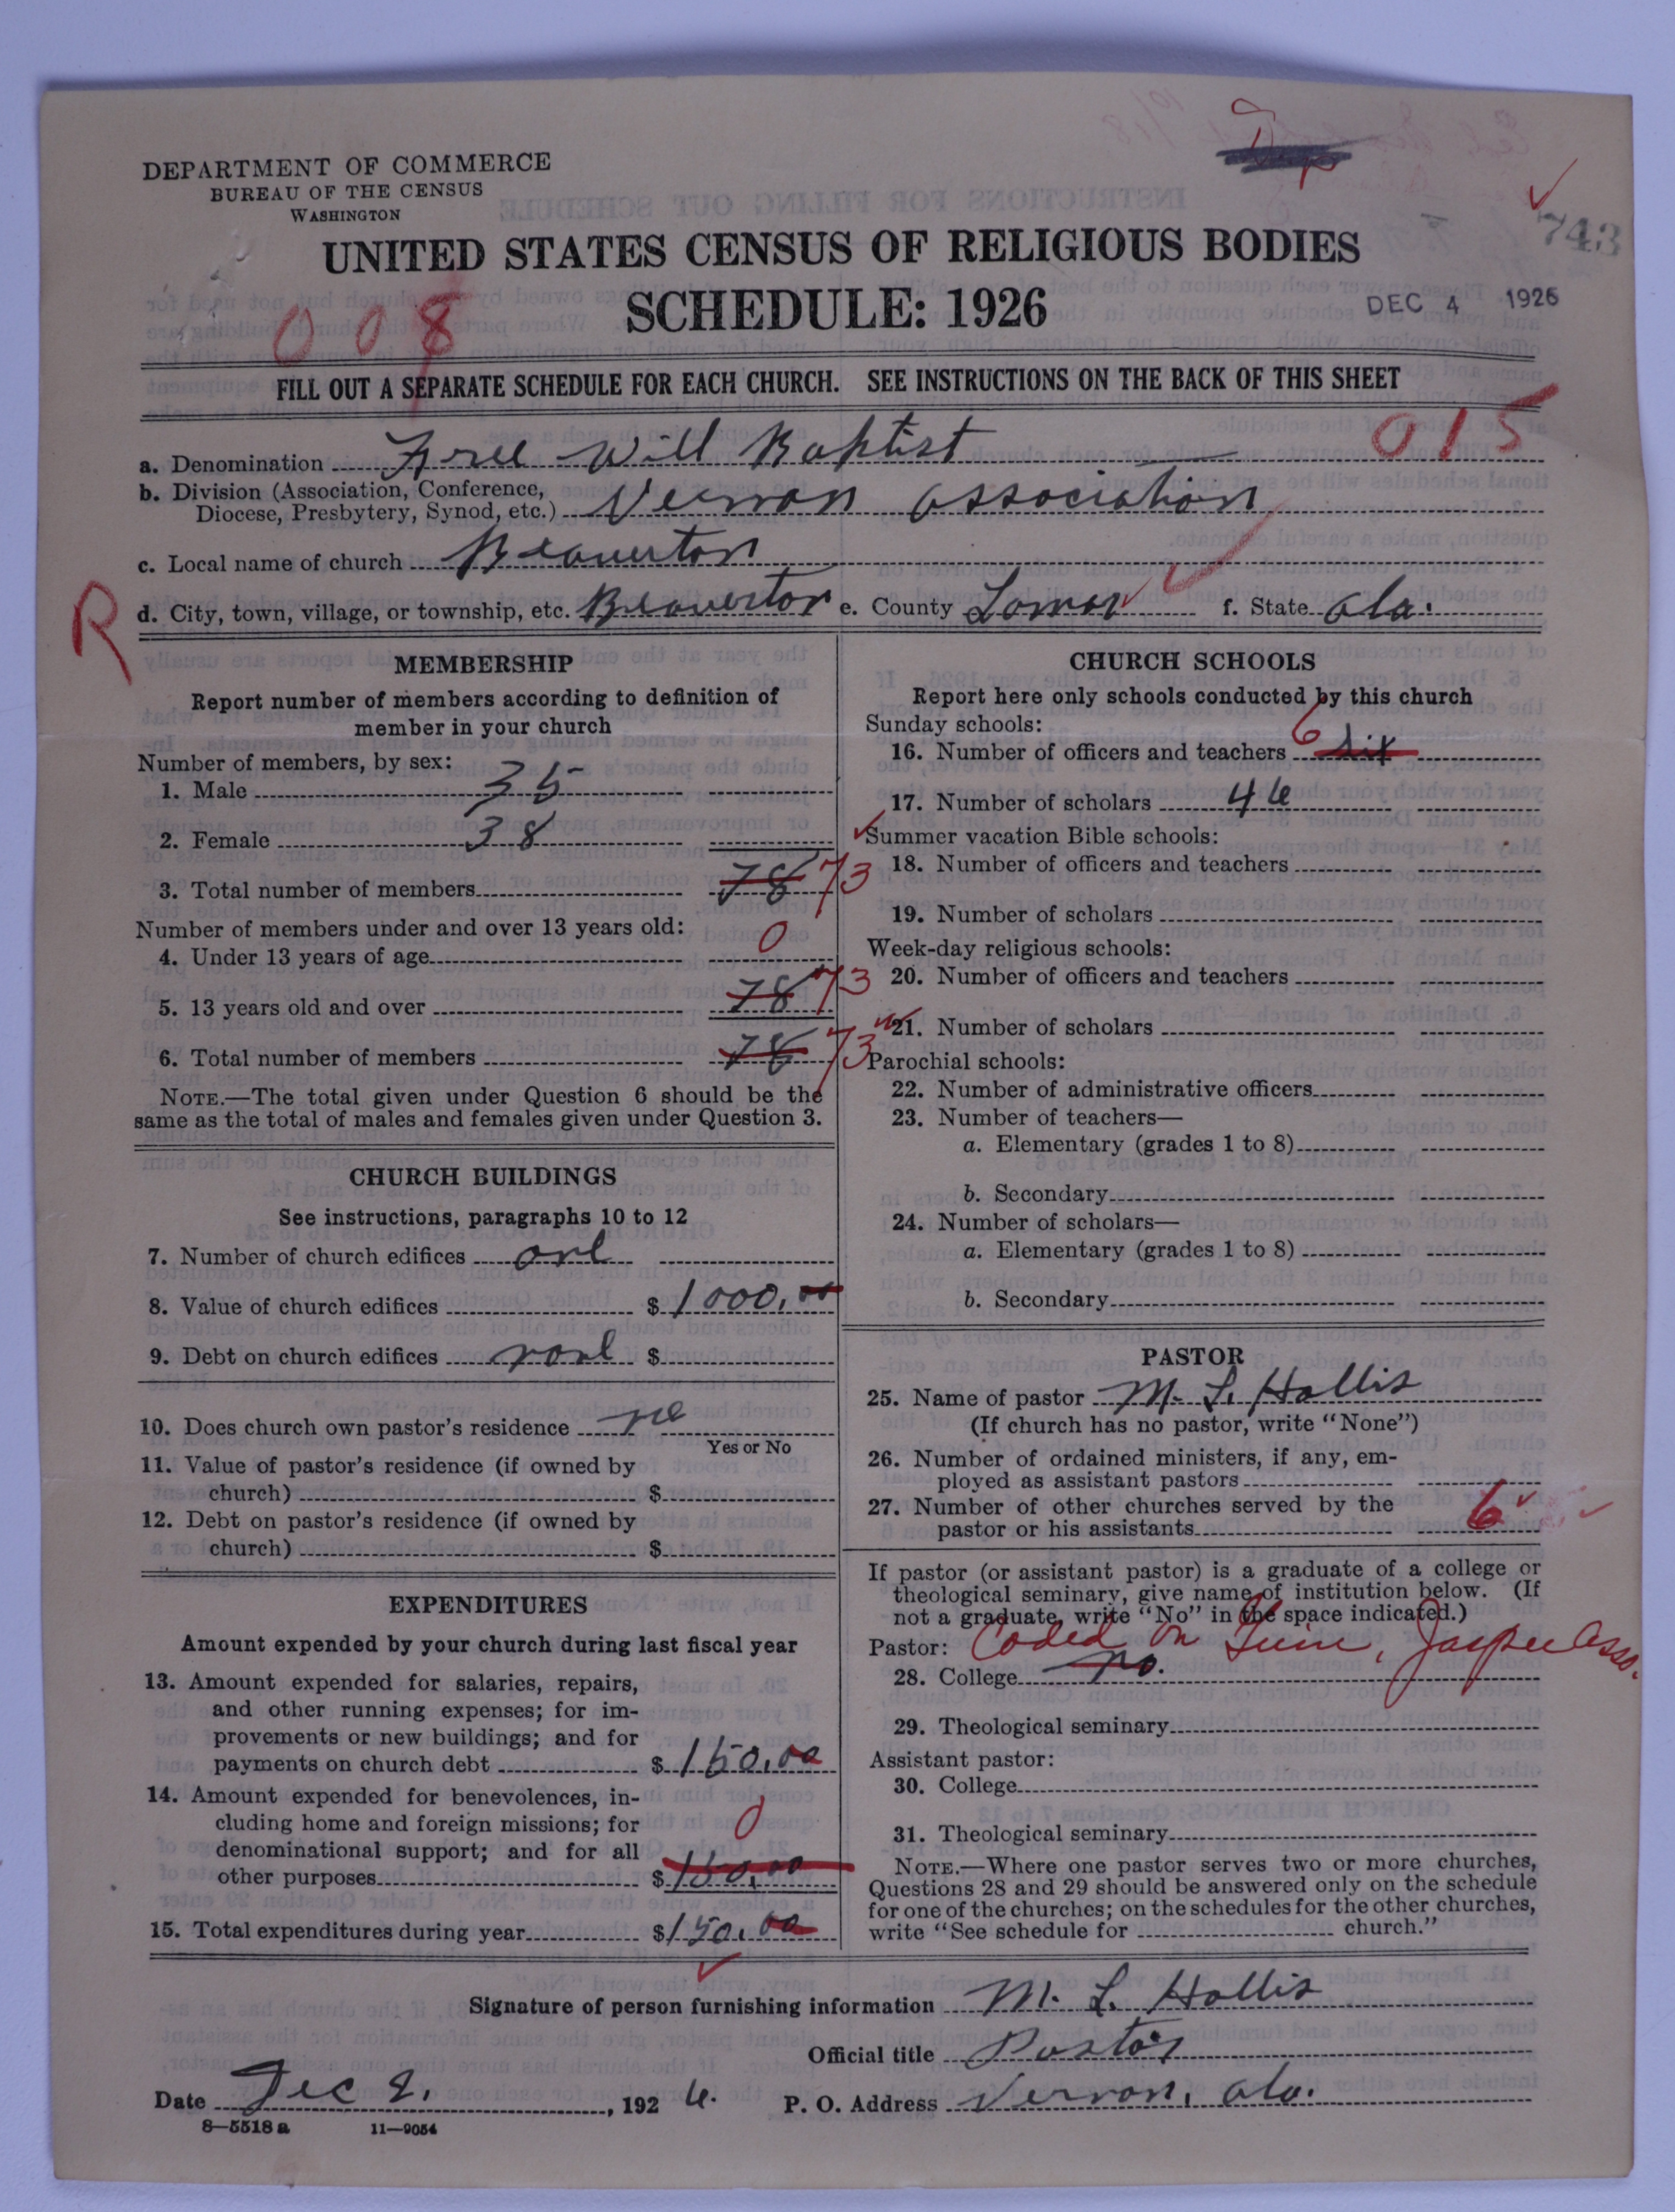 DEPARTMENT OF COMMERCE
BUREAU OF THE CENSUS
WASHINGTON
743
UNITED STATES CENSUS OF RELIGIOUS BODIES
SCHEDULE: 1926
DEC 4 1926
008
FILL OUT A SEPARATE SCHEDULE FOR EACH CHURCH. SEE INSTRUCTIONS ON THE BACK OF THIS SHEET
015
a. Denomination Free Will Baptist
b. Division (Association, Conference,
Diocese, Presbytery, Synod, etc.) Vernon Association
c. Local name of church Beaverton
R
d. City, town, village, or township, etc. Beaverton e. County Lamar f. State Ala.
MEMBERSHIP
Report number of members according to definition of
member in your church
Number of members, by sex:
1. Male 35
2. Female 38
3. Total number of members 78 73
Number of members under and over 13 years old:
4. Under 13 years of age 0
5. 13 years old and over 78 73
6. Total number of members 78 73
NOTE.—The total given under Question 6 should be the
same as the total of males and females given under Question 3.
CHURCH BUILDINGS
See instructions, paragraphs 10 to 12
7. Number of church edifices one
8. Value of church edifices $ 1000.00
9. Debt on church edifices none $
10. Does church own pastor's residence no
Yes or No
11. Value of pastor's residence (if owned by
church) $
12. Debt on pastor's residence (if owned by
church) $
EXPENDITURES
Amount expended by your church during last fiscal year
13. Amount expended for salaries, repairs,
and other running expenses; for im-
provements or new buildings; and for
payments on church debt $ 150.00
14. Amount expended for benevolences, in-
cluding home and foreign missions; for
denominational support; and for all
other purposes $ 150.00 0
15. Total expenditures during year $ 150.00
CHURCH SCHOOLS
Report here only schools conducted by this church
Sunday schools:
16. Number of officers and teachers 6 six
17. Number of scholars 46
Summer vacation Bible schools:
18. Number of officers and teachers
19. Number of scholars
Week-day religious schools:
20. Number of officers and teachers
21. Number of scholars
Parochial schools:
22. Number of administrative officers
23. Number of teachers—
a. Elementary (grades 1 to 8)
b. Secondary
24. Number of scholars—
a. Elementary (grades 1 to 8)
b. Secondary
PASTOR
25. Name of pastor M. L. Hollis
(If church has no pastor, write "None")
26. Number of ordained ministers, if any, em-
ployed as assistant pastors
27. Number of other churches served by the
pastor or his assistants 6
If pastor (or assistant pastor) is a graduate of a college or
theological seminary, give name of institution below. (If
not a graduate, write "No" in the space indicated.)
Pastor: Coded on , Jasper Asso.
28. College no.
29. Theological seminary
Assistant pastor:
30. College
31. Theological seminary
NOTE.—Where one pastor serves two or more churches,
Questions 28 and 29 should be answered only on the schedule
for one of the churches; on the schedules for the other churches,
write "See schedule for church."
Signature of person furnishing information M. L. Hollis
Official title Pastor
Date Dec 2, 1926. P. O. Address Vernon, Ala.
8—5518a 11—9054